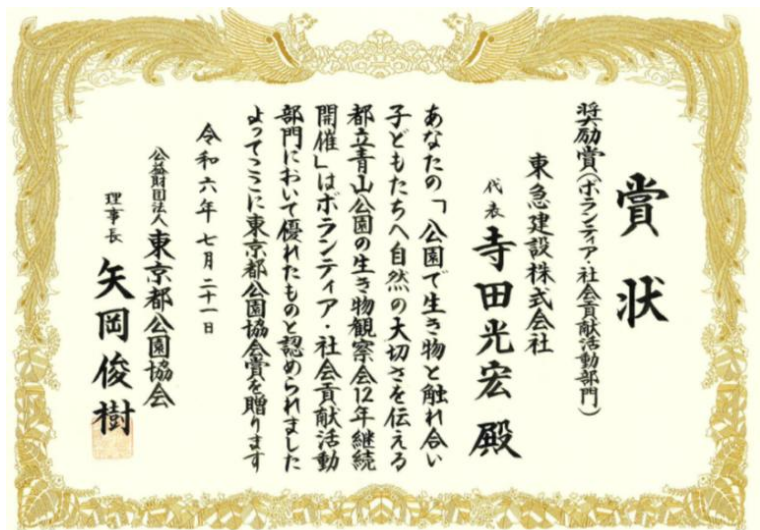 賞状
奨励賞(ボランティア・社会貢献活動部門)
東急建設株式会社
代表 寺田光宏 殿
あなたの「公園で生き物と触れ合い
子どもたちへ自然の大切さを伝える
都立青山公園の生き物観察会12年継続
開催」はボランティア・社会貢献活動
部門において優れたものと認められました
よってここに東京都公園協会賞を贈ります
令和六年七月二十一日
公益財団法人 東京都公園協会
理事長 矢岡俊樹